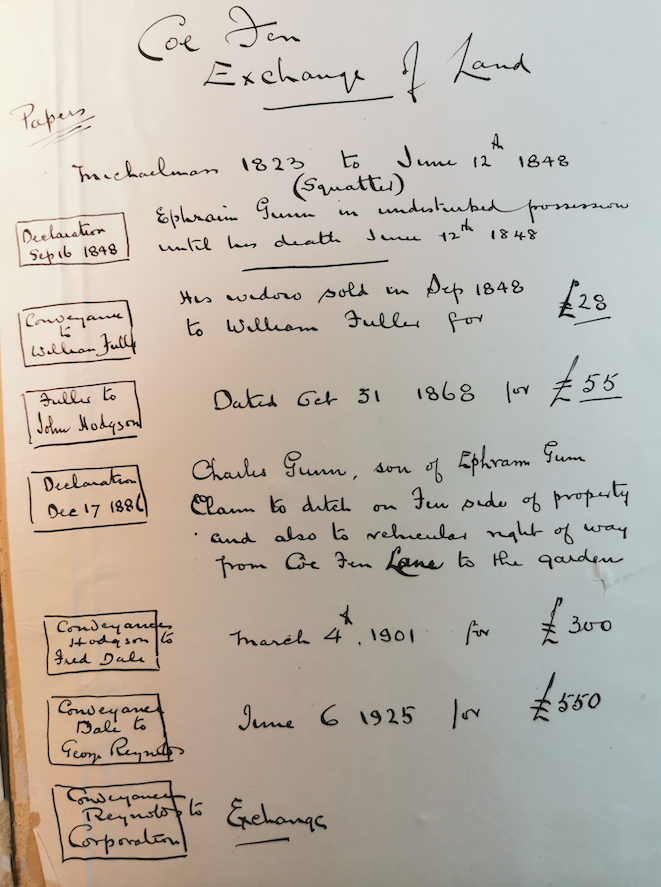 Coe Fen
Exchange of Land
Papers
Michaelmass 1823 to June 12th 1848
(Squatter)
Declaration
Sep 16 1848
Ephraim Gunn in undisturbed possession
until his death June 12th 1848
Conveyance
to
William Fuller
His widow sold in Sep 1848
to William Fuller for £28
Fuller to
John Hodgson
Dated Oct 31 1868 for £55
Declaration
Dec 17 1886
Charles Gunn, son of Ephraim Gunn
Claim to ditch on Fen side of property
and also to vehicular right of way
from Coe Fen Lane to the garden
Conveyance
Hodgson to
Fred Dale
March 4th. 1901 for £300
Conveyance
Dale to
George Reynolds
June 6 1925 for £550
Conveyance
Reynolds to
Corporation
Exchange